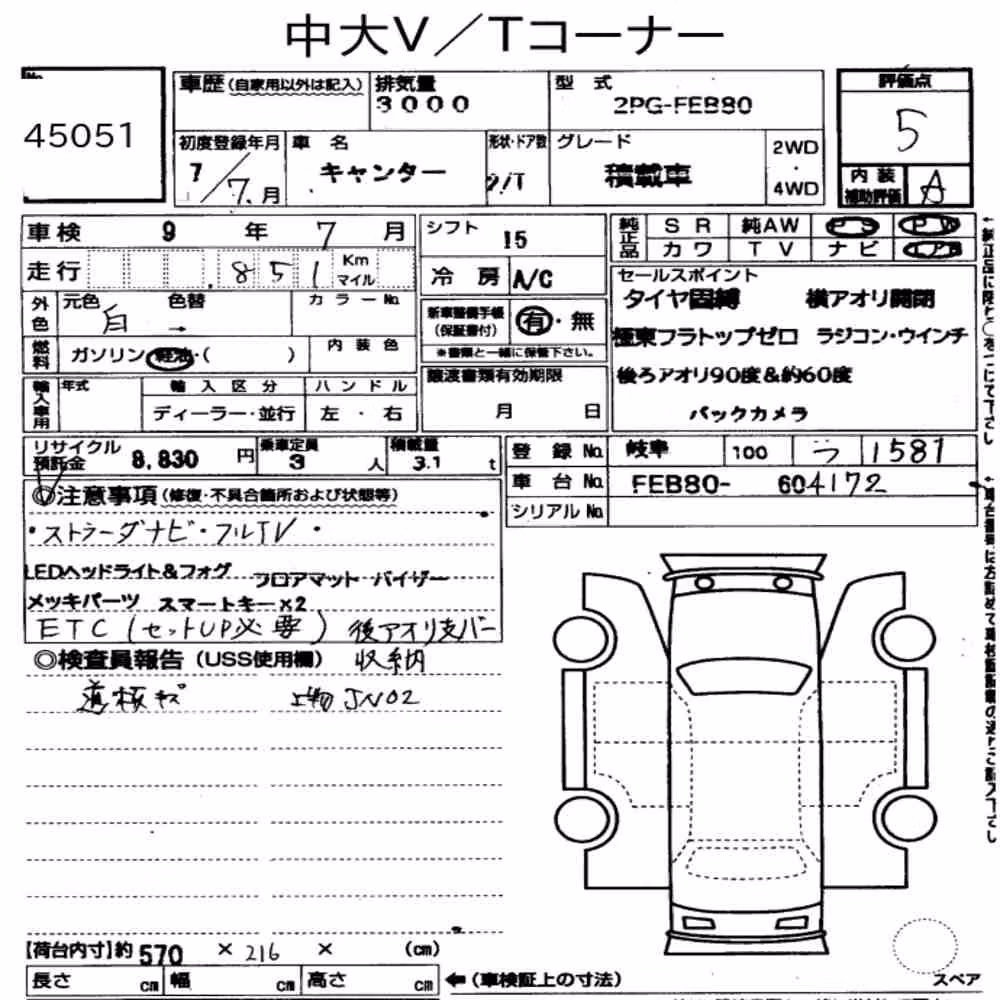 中大V／Tコーナー
No.
45051
車歴 (自家用以外は記入)
排気量
3000
型 式
2PG-FEB80
評価点
5
初度登録年月
7/7.月
車 名
キャンター
形状・ドア数
2/T
グレード
積載車
2WD
・
4WD
内 装
補助評価
A
車検 9 年 7 月
走行 .851 Km マイル
外色
元色
白
色替
→
カラーNo.
燃料
ガソリン・軽油・( )
内 装 色
輸入車用
年式
輸 入 区 分
ディーラー・並行
ハ ン ド ル
左 ・ 右
シフト
I5
冷 房
A/C
新車整備手帳
(保証書付)
有・無
※書類と一緒に保管下さい。
譲渡書類有効期限
月 日
純正品
S R 純AW P S P W
カ ワ T V ナ ビ エアB
セールスポイント
タイヤ固縛 横アオリ開閉
極東フラトップゼロ ラジコン・ウインチ
後ろアオリ90度&約60度
バックカメラ
リサイクル預託金 8,830 円
乗車定員 3 人
積載量 3.1 t
登 録 No. 岐阜 100 う 1581
車 台 No. FEB80- 604172
シリアル No.
◎注意事項 (修復・不具合箇所および状態等)
・ストラーダナビ・フルTV・
LEDヘッドライト&フォグ フロアマット バイザー
メッキパーツ スマートキー×2
ETC (セットUP必要) 後アオリ支バー
収納
◎検査員報告 (USS使用欄)
道板キズ 上物JN02
【荷台内寸】約 570 × 216 × (cm)
長さ cm 幅 cm 高さ cm
←(車検証上の寸法)
スペア